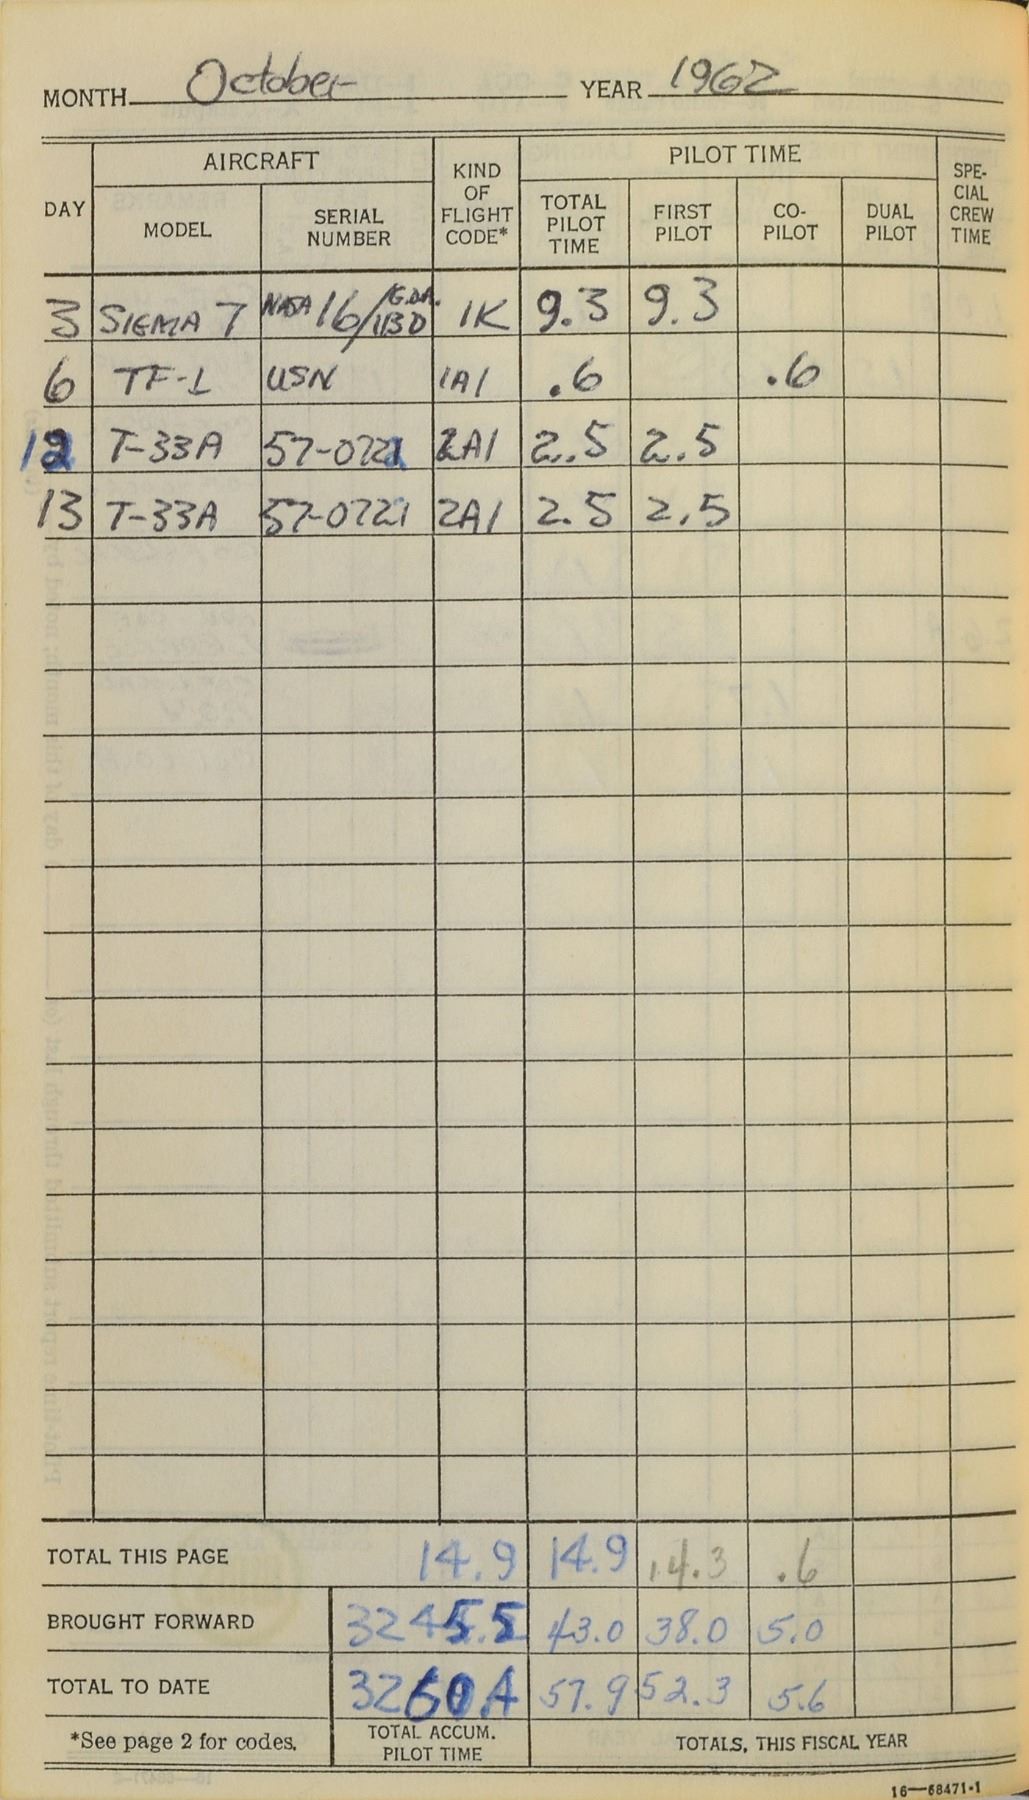 MONTH October YEAR 1962
DAY AIRCRAFT MODEL SERIAL NUMBER KIND OF FLIGHT CODE* PILOT TIME TOTAL PILOT TIME FIRST PILOT CO-PILOT DUAL PILOT SPE-CIAL CREW TIME
3 SIGMA 7 NASA 16/G.D.A. 113D 1K 9.3 9.3
6 TF-1 USN 1A1 .6 .6
12 T-33A 57-0721 2A1 2.5 2.5
13 T-33A 57-0721 2A1 2.5 2.5
TOTAL THIS PAGE 14.9 14.9 14.3 .6
BROUGHT FORWARD 3245.5 43.0 38.0 5.0
TOTAL TO DATE 3260.4 57.9 52.3 5.6
*See page 2 for codes. TOTAL ACCUM. PILOT TIME TOTALS, THIS FISCAL YEAR
16—68471-1